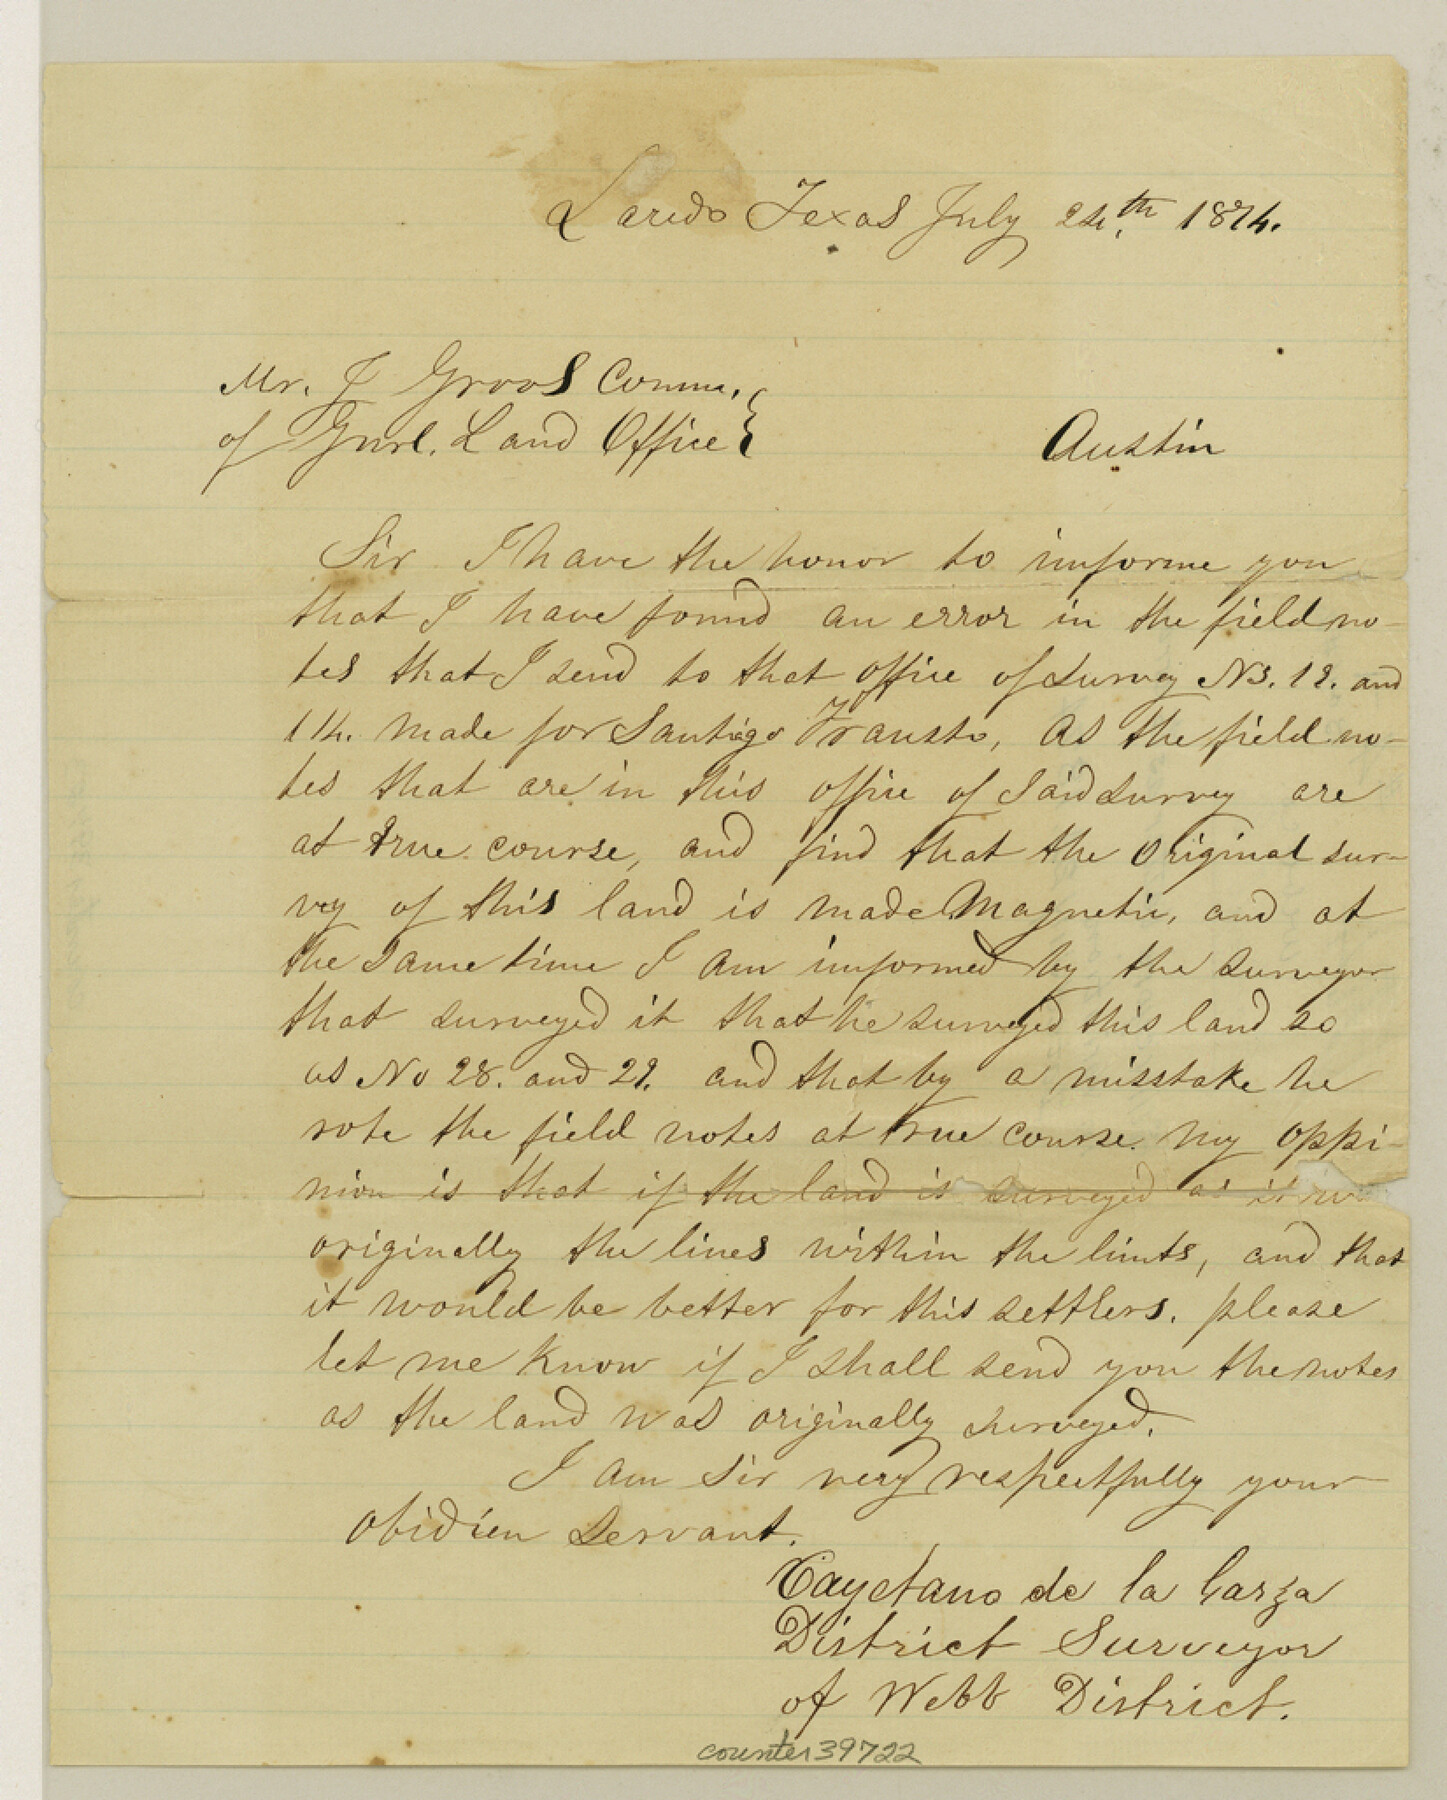 Laredo Texas July 24th. 1874.
Mr. J Groos Comm.
of Gnrl. Land Office
Austin
Sir I have the honor to informe you
that I have found an error in the field no-
tes that I send to that office of survey No. 12. and
114. made for Santiago Frausto, as the field no-
tes that are in this office of said survey are
at true course, and find that the original sur-
vey of this land is made Magnetic, and at
the same time I am informed by the surveyor
that surveyed it that he surveyed this land so
as No 28. and 29. and that by a misstake he
rote the field notes at true course. my oppi-
nion is that if the land is surveyed as it
originally the lines within the limits, and that
it would be better for this settlers. please
let me know if I shall send you the notes
as the land was originally surveyed.
I am Sir very respectfully your
obidien servant.
Cayetano de la Garza
District Surveyor
of Webb District.
counter 39722